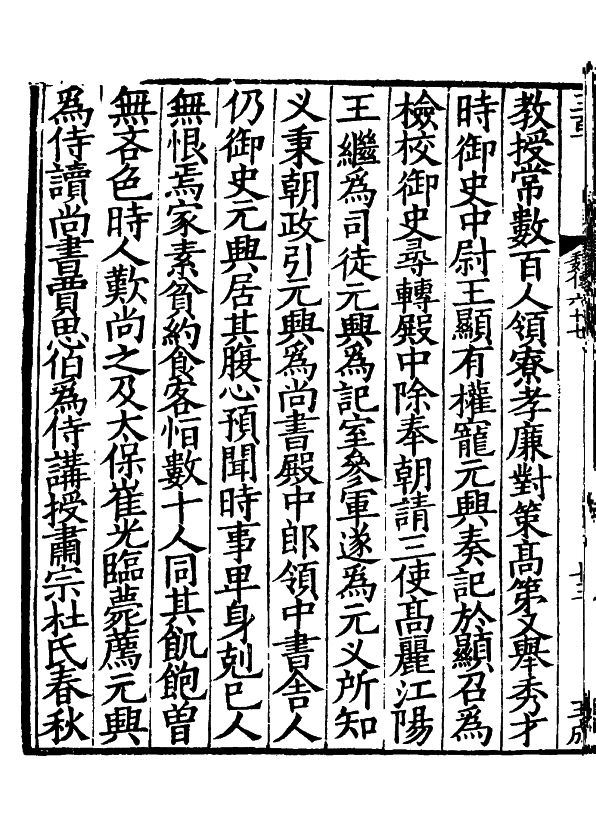 教授常數百人領寮孝廉對策髙第又舉秀才
時御史中尉王顯有權寵元興奏記於顯召爲
檢校御史尋轉殿中除奉朝請三使髙麗江陽
王繼爲司徒元興爲記室參軍遂爲元乂所知
乂秉朝政引元興爲尚書殿中郎領中書舍人
仍御史元興居其腹心預聞時事卑身剋己人
無恨焉家素貧約食客恒數十人同其飢飽曽
無吝色時人歎尚之及太保崔光臨薨薦元興
爲侍讀尚書賈思伯爲侍講授肅宗杜氏春秋